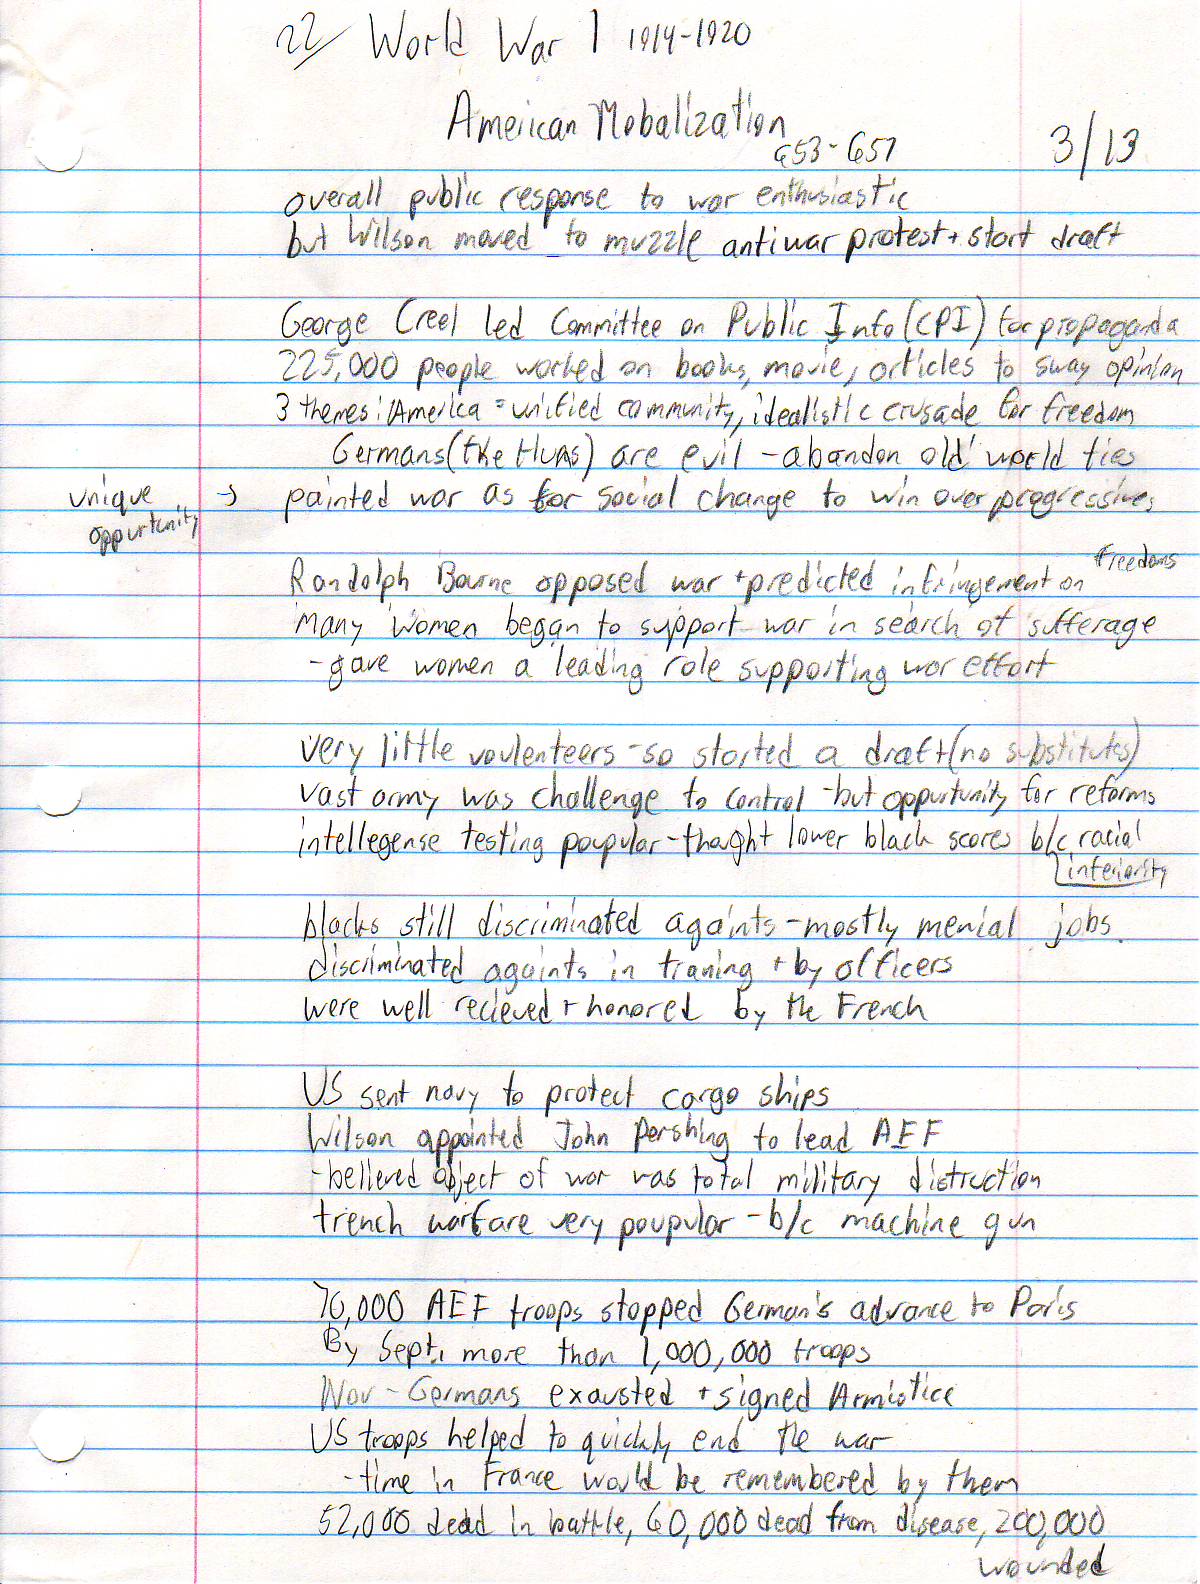 22/ World War 1 1914-1920
American Mobalization
653-657
3/13
overall public response to war enthusiastic
but Wilson moved to muzzle antiwar protest + start draft
George Creel led Committee on Public Info (CPI) for propaganda
225,000 people worked on books, movie, articles to sway opinion
3 themes: America = unified community, idealistic crusade for freedom
Germans (the Huns) are evil - abandon old world ties
unique opportunity → painted war as for social change to win over progressives
Randolph Bourne opposed war + predicted infringement on freedoms
many women began to support war in search of sufferage
- gave women a leading role supporting war effort
very little voulenteers - so started a draft (no substitutes)
vast army was challenge to control - but oppurtunity for reforms
intellegense testing poupular - thought lower black scores b/c racial
inferiority
blacks still discriminated againts - mostly menial jobs.
discriminated againts in traning + by officers
were well recieved + honored by the French
US sent navy to protect cargo ships
Wilson appointed John Pershing to lead AEF
- belived object of war was total military distruction
trench warfare very poupular - b/c machine gun
70,000 AEF troops stopped German's advance to Paris
By Sept, more than 1,000,000 troops
Nov - Germans exausted + signed Armistice
US troops helped to quickly end the war
- time in France would be remembered by them
52,000 dead in battle, 60,000 dead from disease, 200,000
wounded